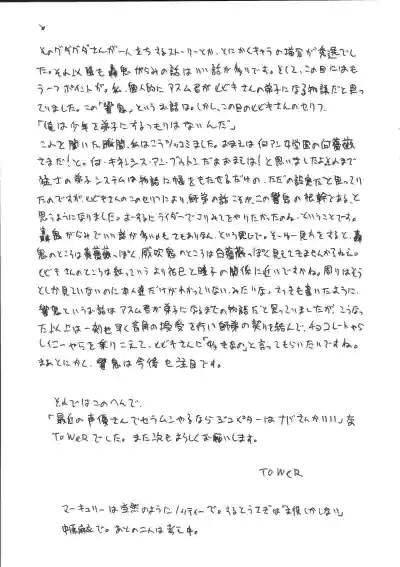 そのグダグダさんが一人立ちするストーリーとか、とにかくキャラの描写が秀逸でし
た。それ以降も轟鬼がらみの話はいい話が多いです。そして、この回にはも
う一つポイントが。私、個人的にアスム君がヒビキさんの弟子になる物語だと思っ
ていました。この「響鬼」というお話は。しかし、この回のヒビキのセリフ。
「俺は少年を弟子にするつもりはないんだ」
これを聞いた瞬間、私はこうツッコミました。おまえは何アン女学園の白薔薇
さまだ!と。何・キネンシス・アン・ブゥトンだよおまえは!と思いましたよ。それまで
猛士の弟子システムは物語に幅をもたせるだけの、ただの設定だと思ってい
たのですが、ヒビキさんのこのセリフにより、師弟の話こそが、この響鬼の根幹である、と
思うようになりました。よーするにライダーでマリみてをやりたかったのね、ということです。
轟鬼がらみでいい話が多いもありなん、という感じで。そーゆー見方をすると、轟
鬼のところは黄薔薇っぽく、威吹鬼のところは白薔薇っぽく見えてきませんかねぇ。ヒ
ビキさんのところは紅っていうより祐巳と瞳子の関係に近いですかね。周りはそう
としか見ていないのに本人達だけがわかっていない、みたいな。さっきも書いたように、
響鬼というお話はアスム君が弟子になるまでの物語だと思っていましたが、こうなっ
た以上は一刻も早く音角の授受を行い師弟の契りを結んで、チョコレートやら
レイニーやらを乗りこえて、ヒビキさんに「妹なの」と言ってもらいたいですね。
まあとにかく、響鬼は今後も注目です。
それではこのへんで。
「最近の声優さんでセラムンやるならジュピターはナバさんがいい」な
TOWERでした。また次もよろしくお願いします。
TOWER
マーキュリーは当然のようにノリティーで。するとうさぎは「主役しかしない」
中原麻衣で。あとの二人は考え中。